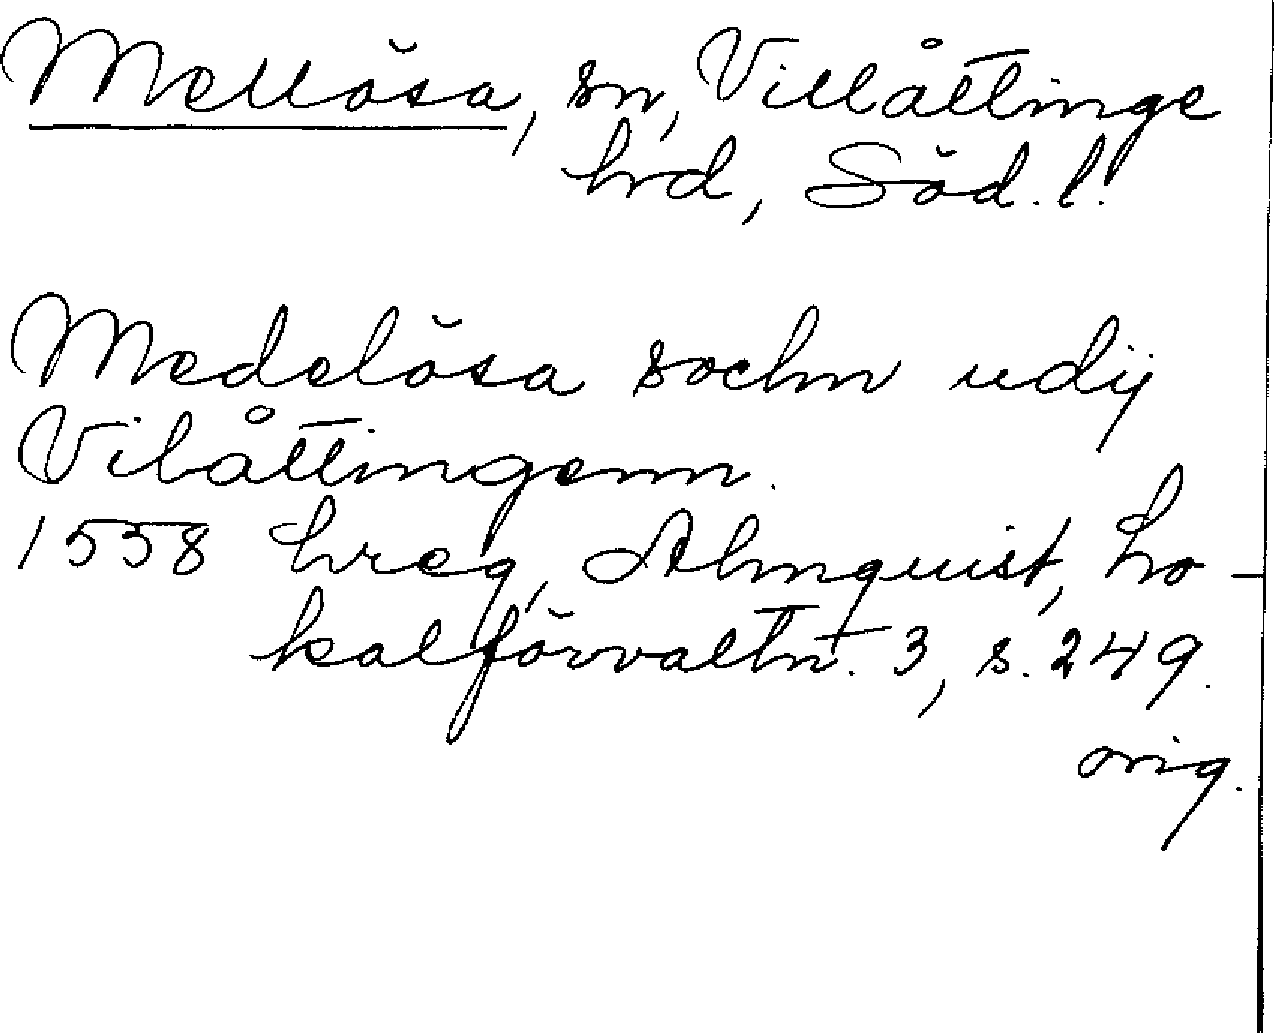 Mellösa, sn, Villåttinge
hrd, Söd. l.
Medelösa sochn udij
Vilåttingenn.
1558 hreg, Almquist, Lo-
kalförvaltn. 3, s. 249.
orig.